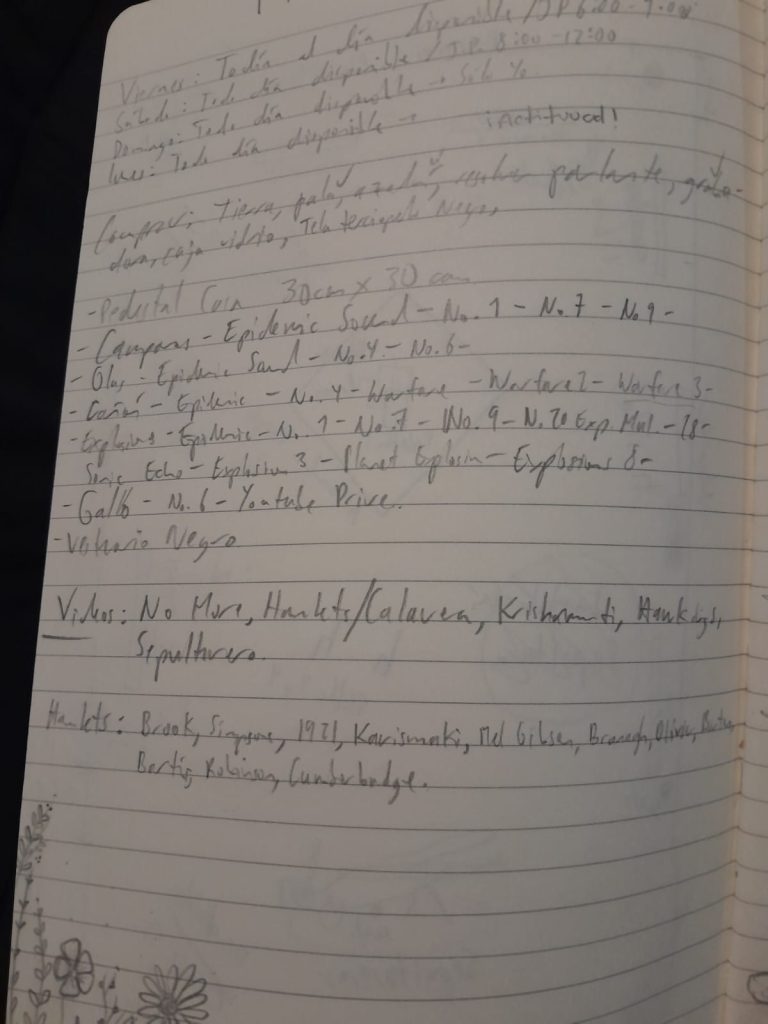 Viernes: Todía el día disponible / J.P 6:00 - 9:00
Sábado: Todo día disponible / J.P. 8:00 - 12:00
Domingo: Todo día disponible → Solo Yo
Lunes: Todo día disponible →
¡Actituuud!
Comprar: Tierra, pala, azadón, parlante, graba-
dora, caja vidrio, Tela terciopelo Negro,
- Pedestal Casa 30cm x 30 cm
- Campanas - Epidemic Sound - No. 1 - No. 7 - No 9 -
- Olas - Epidemic Sound - No. 4 - No. 6 -
- Cañón - Epidemic - No. 4 - Warfare - Warfare 2 - Warfare 3 -
- Explosions - Epidemic - No. 1 - No. 7 - No. 9 - N. 20 Exp. Mul. - 18 -
Sonic Echo - Explosion 3 - Planet Explosion - Explosions 8 -
- Gallo - No. 6 - Youtube Prive.
- Vestuario Negro
Videos: No More, Hamlets/Calavera, Krishnamurti,
Sepulturero.
Hamlets: Brook, Simpsons, 1921, Kaurismaki, Mel Gibson, Branagh, Olivier, Burton,
Robinson, Cumberbadge.